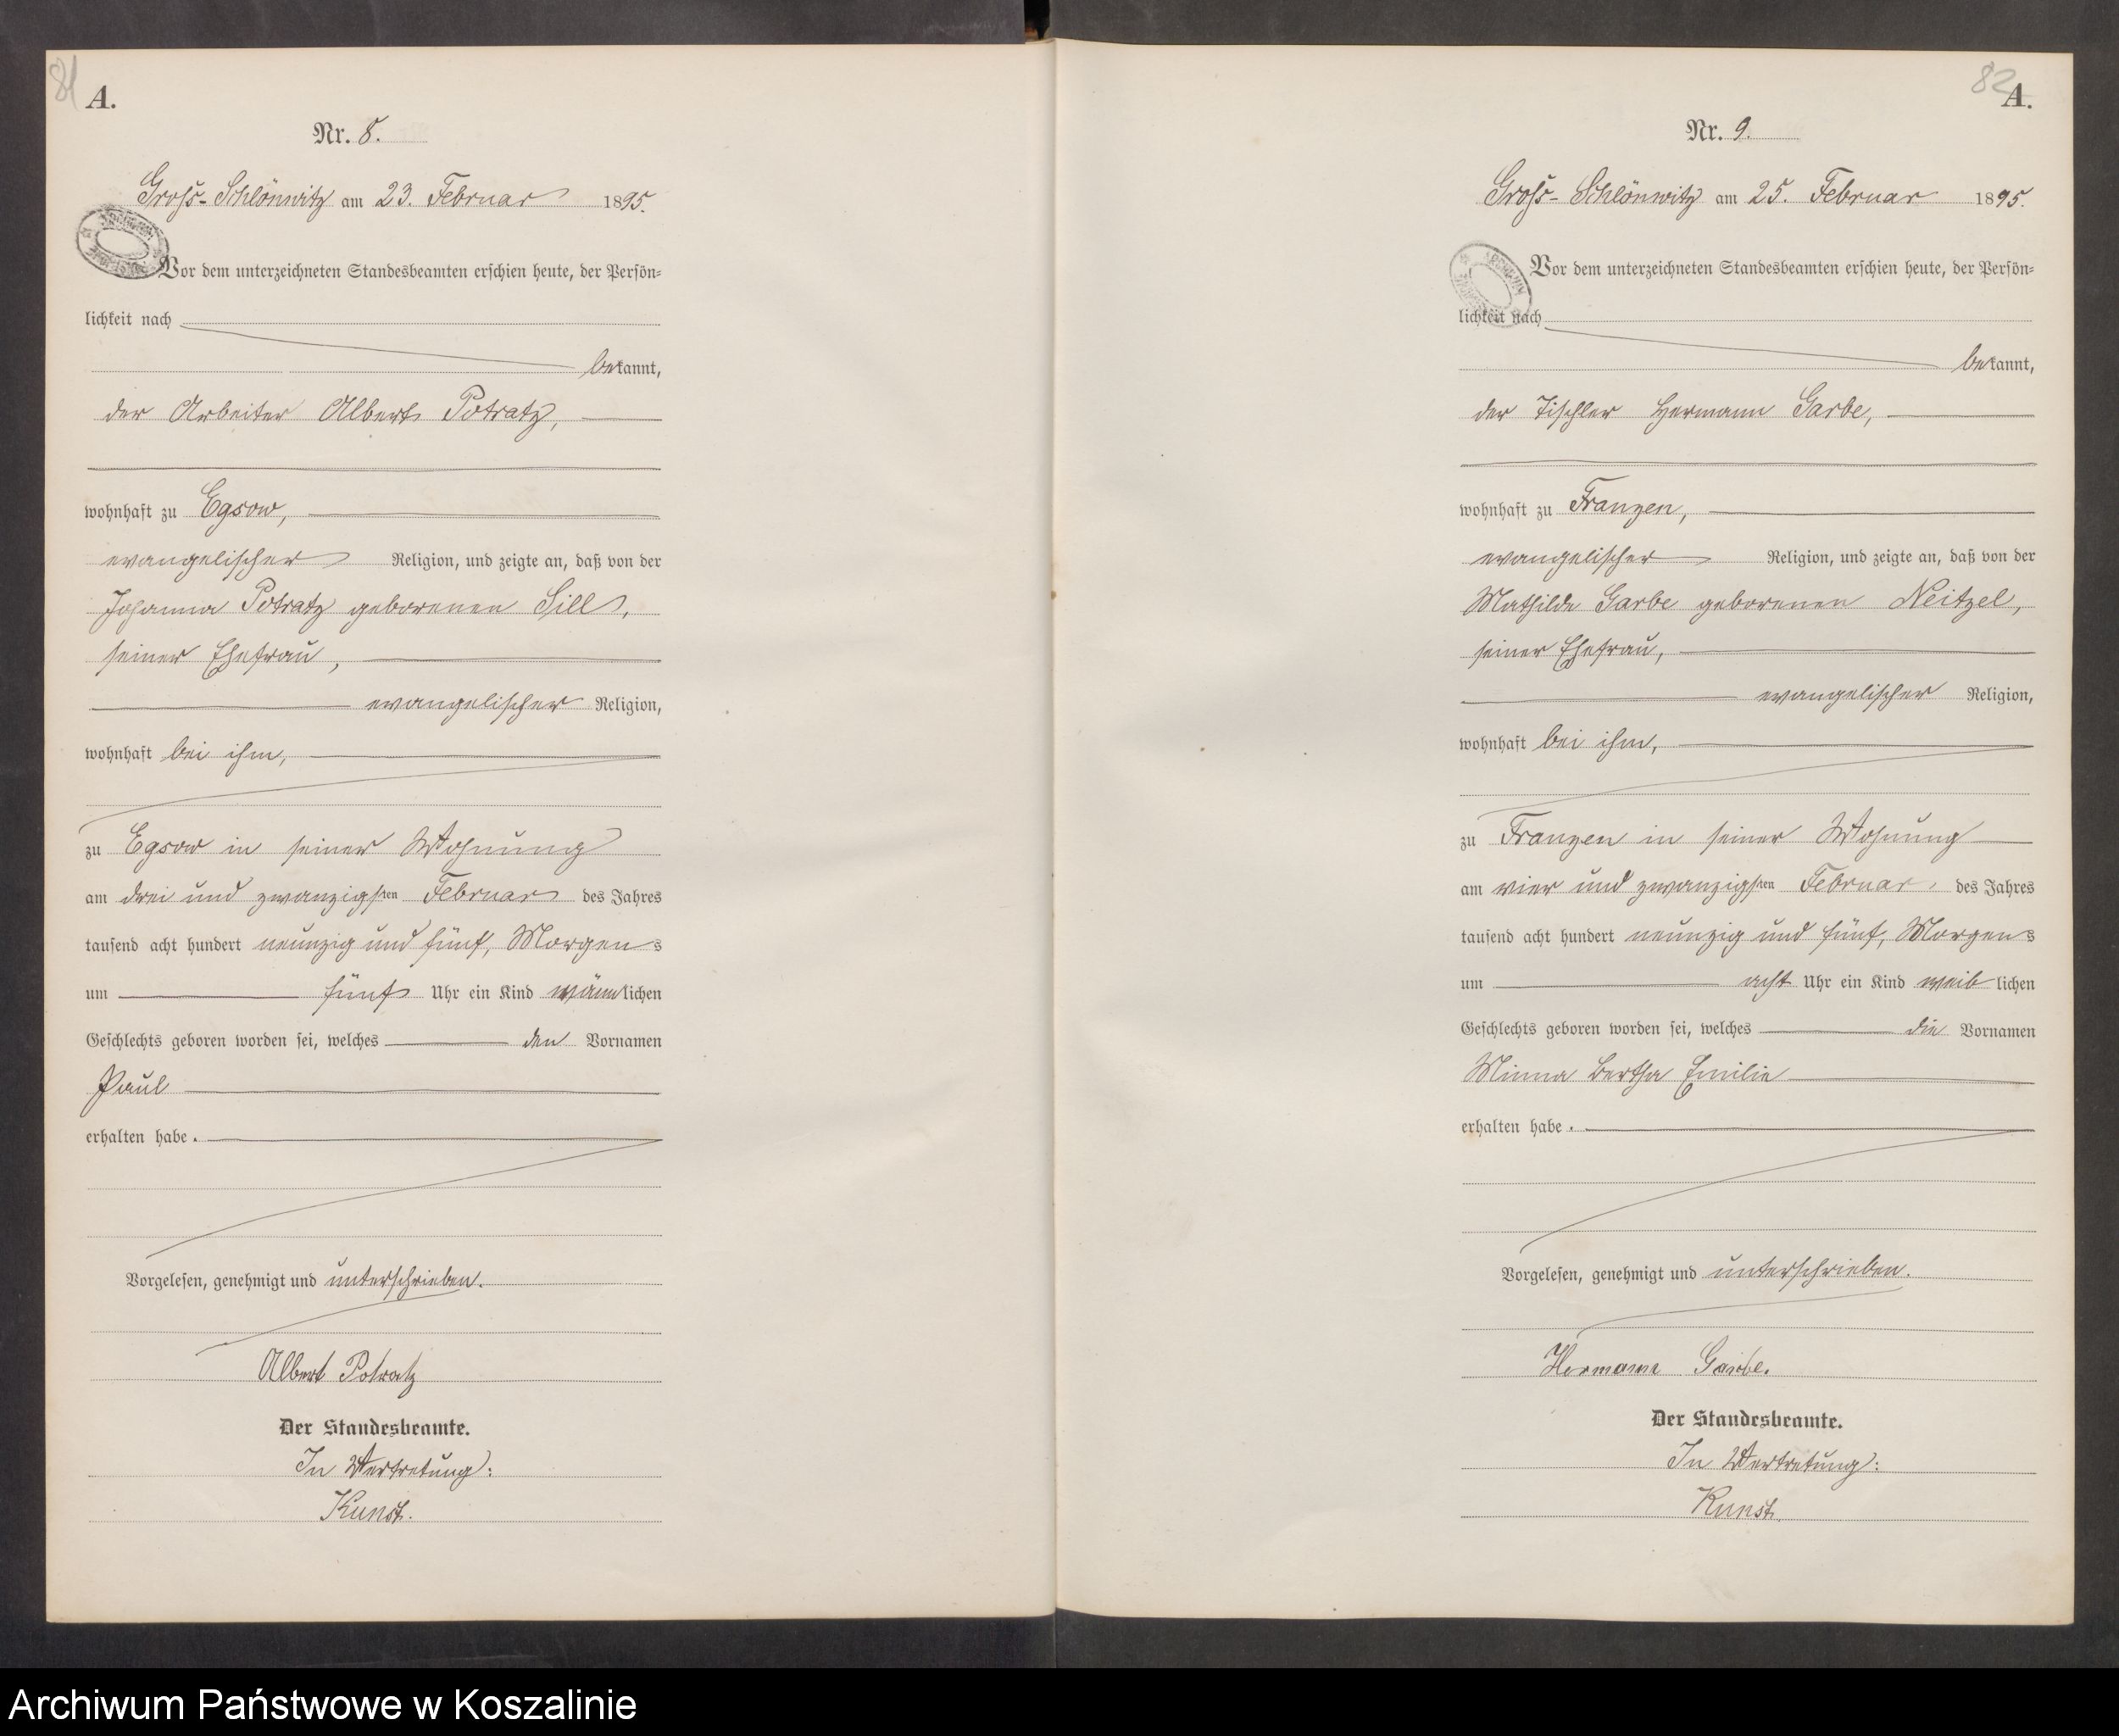 81
A.
Nr. 8.
Groß-Schlönwitz am 23. Februar 1895.
Vor dem unterzeichneten Standesbeamten erschien heute, der Persön-
lichkeit nach
bekannt,
der Arbeiter Albert Potratz,
wohnhaft zu Egsow,
evangelischer Religion, und zeigte an, daß von der
Johanna Potratz geborenen Sill,
seiner Ehefrau,
evangelischer Religion,
wohnhaft bei ihm,
zu Egsow in seiner Wohnung
am drei und zwanzigsten Februar des Jahres
tausend acht hundert neunzig und fünf, Morgens
um fünf Uhr ein Kind männlichen
Geschlechts geboren worden sei, welches den Vornamen
Paul
erhalten habe.
Vorgelesen, genehmigt und unterschrieben.
Albert Potratz
Der Standesbeamte.
In Vertretung:
Kunst.
82
A.
Nr. 9.
Groß-Schlönwitz am 25. Februar 1895.
Vor dem unterzeichneten Standesbeamten erschien heute, der Persön-
lichkeit nach
bekannt,
der Tischler Hermann Garbe,
wohnhaft zu Franzen,
evangelischer Religion, und zeigte an, daß von der
Mathilde Garbe geborenen Neitzel,
seiner Ehefrau,
evangelischer Religion,
wohnhaft bei ihm,
zu Franzen in seiner Wohnung
am vier und zwanzigsten Februar des Jahres
tausend acht hundert neunzig und fünf, Morgens
um acht Uhr ein Kind weiblichen
Geschlechts geboren worden sei, welches die Vornamen
Minna Bertha Emilie
erhalten habe.
Vorgelesen, genehmigt und unterschrieben.
Hermann Garbe.
Der Standesbeamte.
In Vertretung:
Kunst.
Archiwum Państwowe w Koszalinie